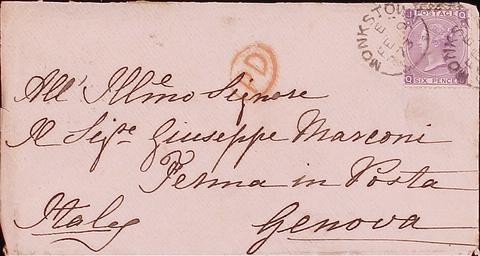 MONKSTOWN
POSTAGE
SIX PENCE
PD
All' Illmo Signore
Il Sigre Giuseppe Marconi
Ferma in Posta
Italy Genova